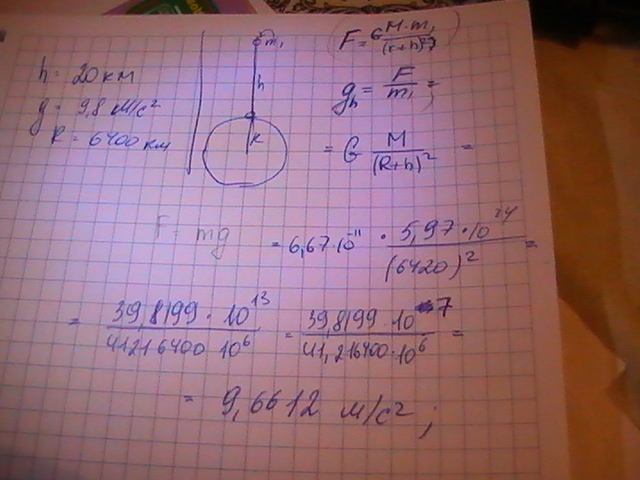 h = 20 км
g = 9,8 м/с²
R = 6400 км
m₁
h
R
F = G M · m₁ / (r+h)²
gₕ = F / m₁ =
= G M / (R+h)² =
F = mg
= 6,67·10⁻¹¹ · 5,97·10²⁴ / (6420)² =
= 39,8199 · 10¹³ / 41216400 10⁶ = 39,8199 · 10⁷ / 41,216400·10⁶ =
= 9,6612 м/с² ;